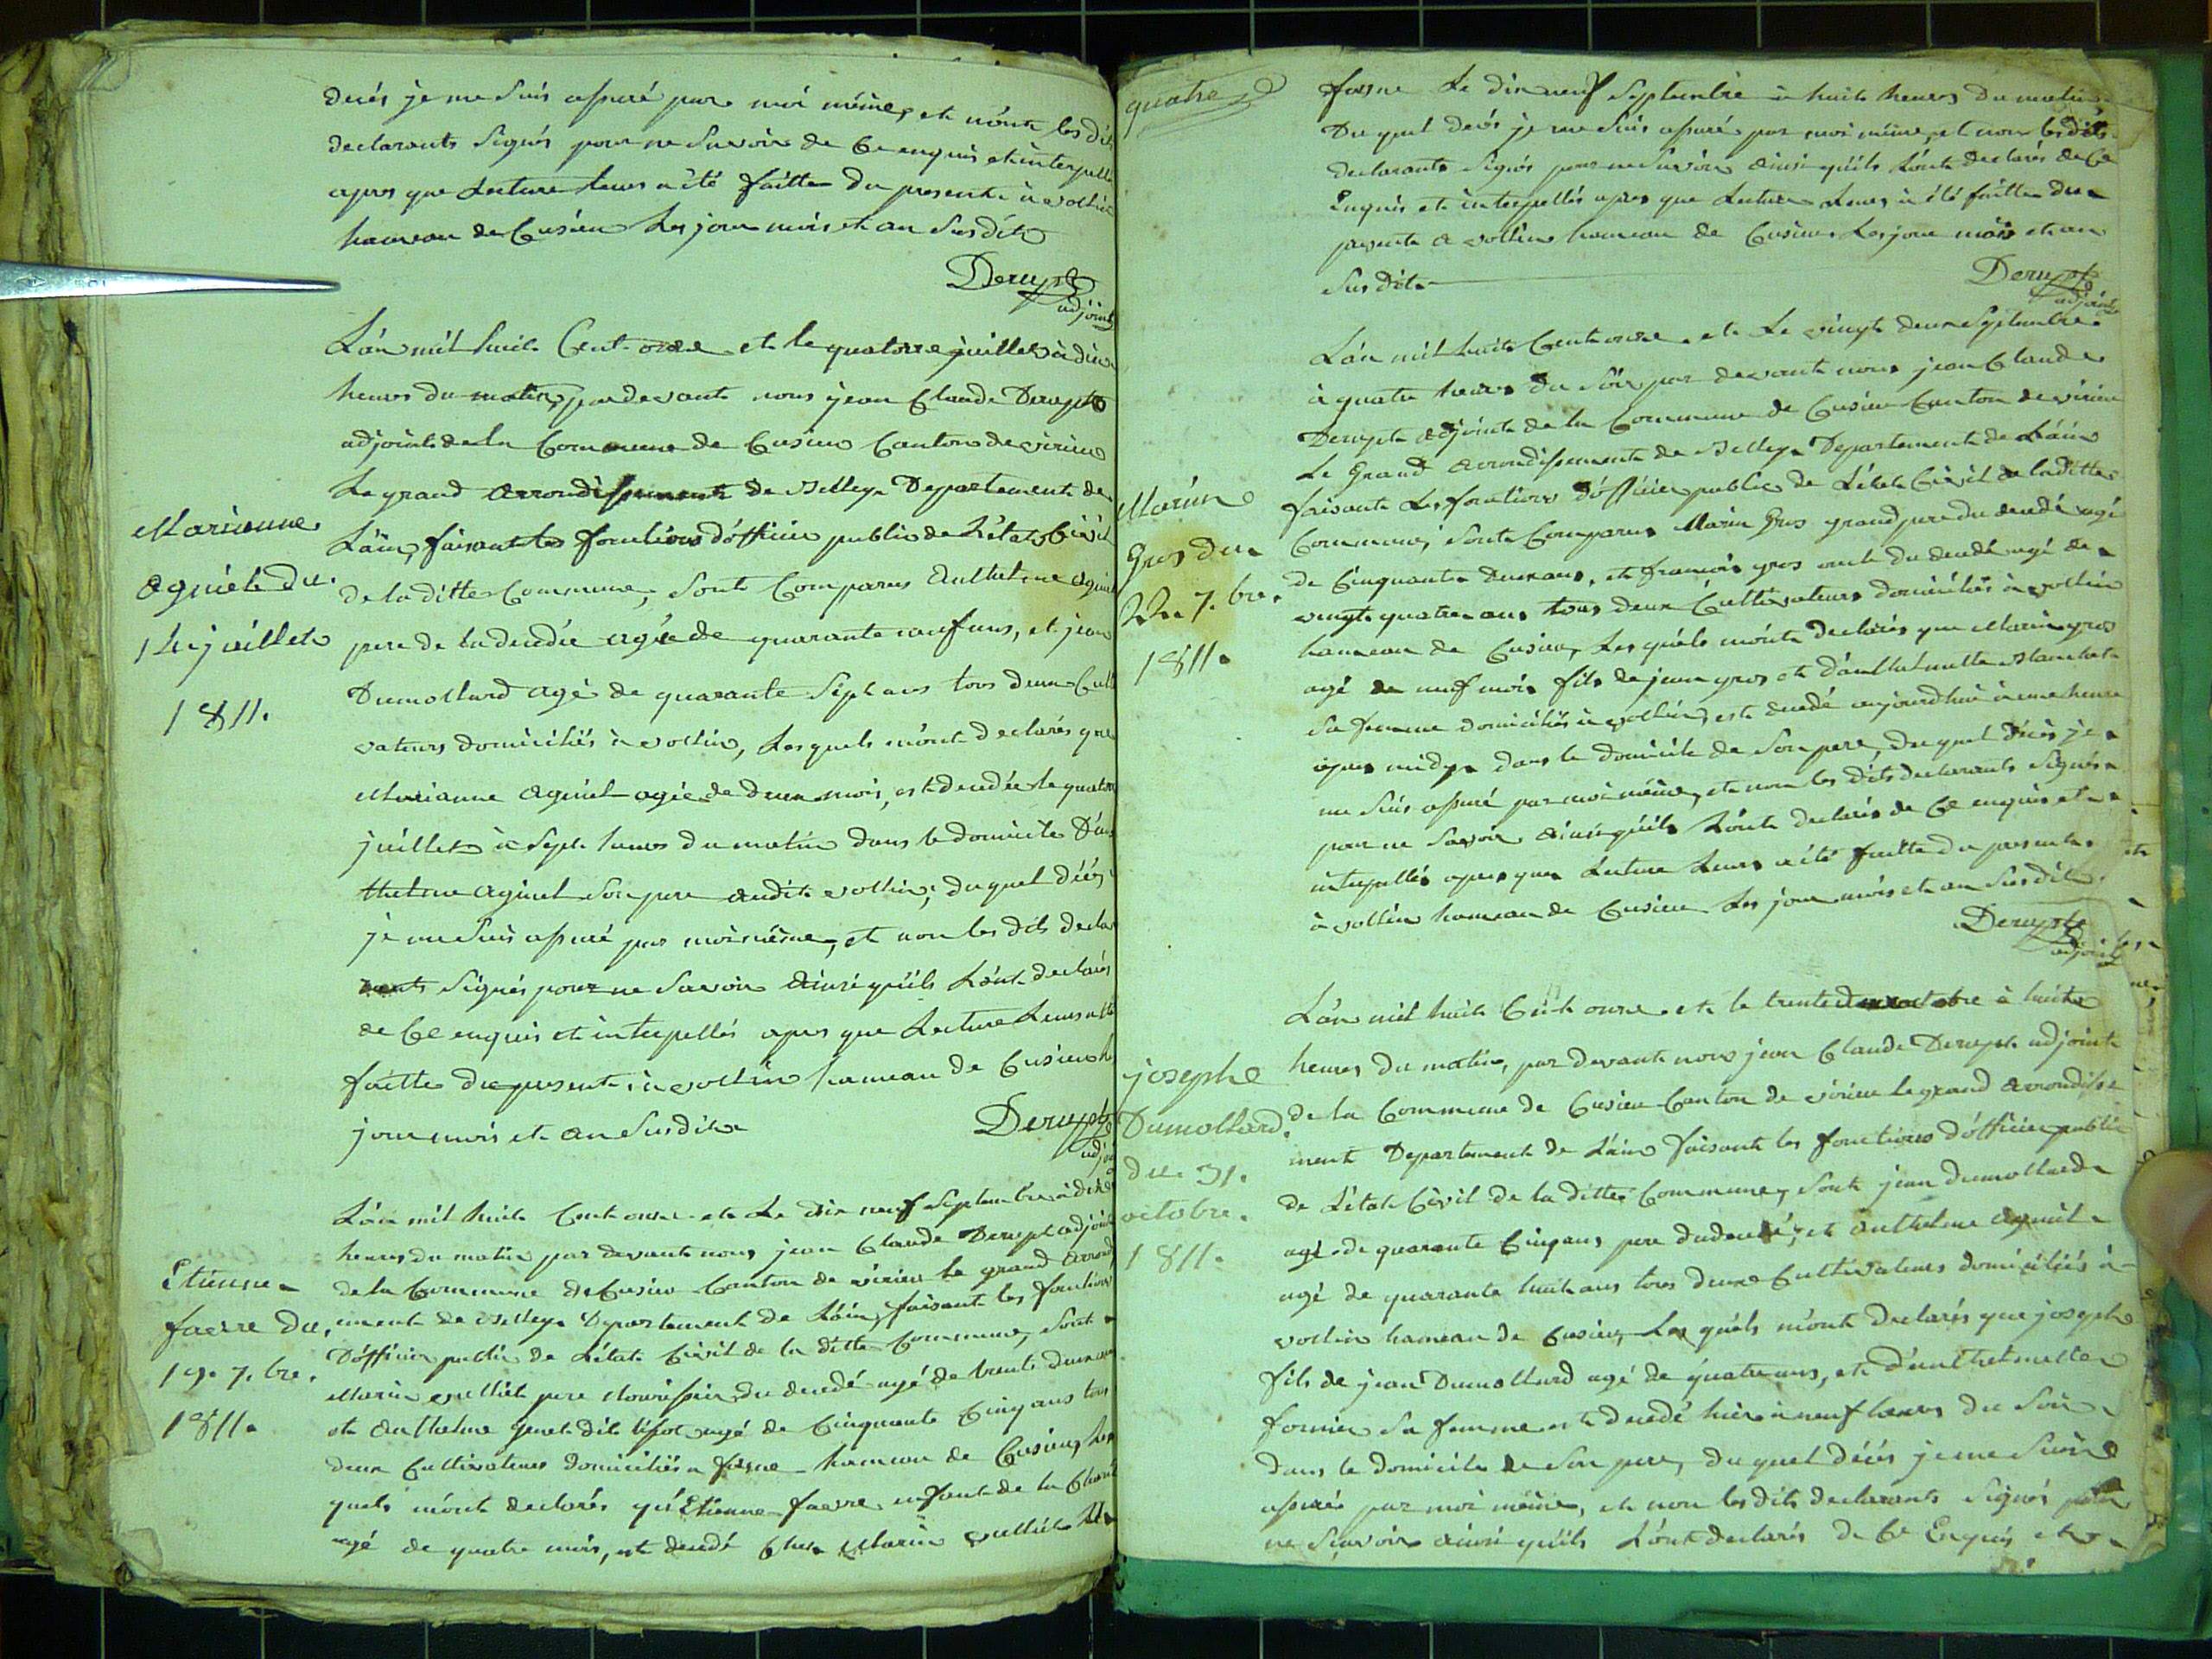 decés je me suis assuré par moi même, et n'ont les dits
declarants signés pour ne savoir de ce enquis et interpellé
apres que lecture leurs a été faitte du presente à vollin
hameau de Cusieu les jour mois et an susdits
Derupt
adjoint
Marianne
aguiet du
14 juillet
1811.
L'an mil huit Cent onze et le quatorze juillet à dix
heures du matin, pardevant nous jean Claude Derupt
adjoint de la Commune de Cusieu Canton de virieu
Le grand arrondissement de Belley Departement de
L'ain, faisant les fonctions d'officier public de L'état Civil
de la ditte Commune, sont Comparus Anthelme aguiet
pere de la decedée agée de quarante neuf ans, et jean
Dumollard agé de quarante sept ans tous deux Culti
vateurs domiciliés à vollin, Lesquels m'ont declarés que
Marianne aguiet agée de deux mois, est decedée le quatorze
juillet à sept heures du matin dans le domicile d'an
thelme aguiet son pere audit vollin, duquel décés
je me suis assuré par moi même, et non les dits decla
rants signés pour ne savoir ainsi qu'ils L'ont declarés
de Ce enquis et interpellés apres que Lecture Leurs a été
faitte du present, à vollin hameau de Cusieu les
jour mois et an susdits
Derupt
adjoint
Etienne
favre du
19. 7.bre.
1811.
L'an mil huit Cent onze et Le dix neuf septembre à dix
heures du matin par devant nous jean Claude Derupt adjoint
de la Commune de Cusieu Canton de virieu le grand arrondisse
ment de Belley Departement de L'ain, faisant les fonctions
D'officier public de L'état Civil de la ditte Commune, sont
Marin vulliet pere nourissier du decedé agé de trente deux ans
et Anthelme genet dit agé de Cinquante Cinq ans tous
deux Cultivateurs domiciliés a fosne hameau de Cusieu, Les
quels m'ont declarés qu'Etienne favre enfant de la Charité
agé de quatre mois, est decedé Chez Marin vulliet
quatre
fosne Le dix neuf Septembre à huit heures du matin,
Du quel decés je me suis assuré par moi même, et non les dits
declarants signés pour ne savoir ainsi qu'ils L'ont declarés de Ce
Enquis et interpellés apres que Lecture Leurs à été faitte du
presente a vollin hameau de Cusieu Les jour mois et an
susdits
Derupt
adjoint
Marin
Gros du
22. 7.bre.
1811.
L'an mil huit Cent onze et Le vingt deux septembre
à quatre heures du soir par devant nous jean Claude
Derupt adjoint de la Commune de Cusieu Canton de virieu
Le Grand arrondissement de Belley Departement de L'ain
faisant Les fonctions d'officier public de L'état Civil de la ditte
Commune, sont Comparus Marin Gros grand pere du decedé agé
de Cinquante deux ans, et francois gros oncle du decedé agé de
vingt quatre ans tous deux Cultivateurs domiciliés à vollin
hameau de Cusieu, Les quels m'ont declarés que Marin gros
agé de neuf mois fils de jean gros et d'anthelmette Blanchet
sa femme domiciliés à vollin, est decedé aujourdhui à une heure
apres midy dans le domicile de son pere, du quel décés je
me suis assuré par moi même, et non les dits declarants signés
pour ne savoir ainsi qu'ils L'ont declarés de Ce enquis et
interpellés apres que Lecture Leurs a été faitte du presente
à vollin hameau de Cusieu Les jour mois et an susdits.
Derupt
adjoint
josephe
Dumollard
du 31.
octobre.
1811.
L'an mil huit Cent onze et le trente un octobre à huit
heures du matin, par devant nous jean Claude Derupt adjoint
de la Commune de Cusieu Canton de virieu le grand arrondisse
ment Departement de L'ain faisant les fonctions d'officier public
de L'état Civil de la ditte Commune, sont jean dumollard
agé de quarante Cinq ans pere du decedé, et anthelme aguiet
agé de quarante huit ans tous deux Cultivateurs domiciliés à
vollin hameau de Cusieu, Les quéls m'ont declarés que joseph
fils de jean Dumollard agé de quatre ans, et d'anthelmette
fornier sa femme est decedé hier à neuf heures du soir
dans le domicile de son pere, du quel décés je me suis
assuré par moi même, et non les dits declarants signés pour
ne sçavoir ainsi qu'ils L'ont declarés de Ce Enquis et